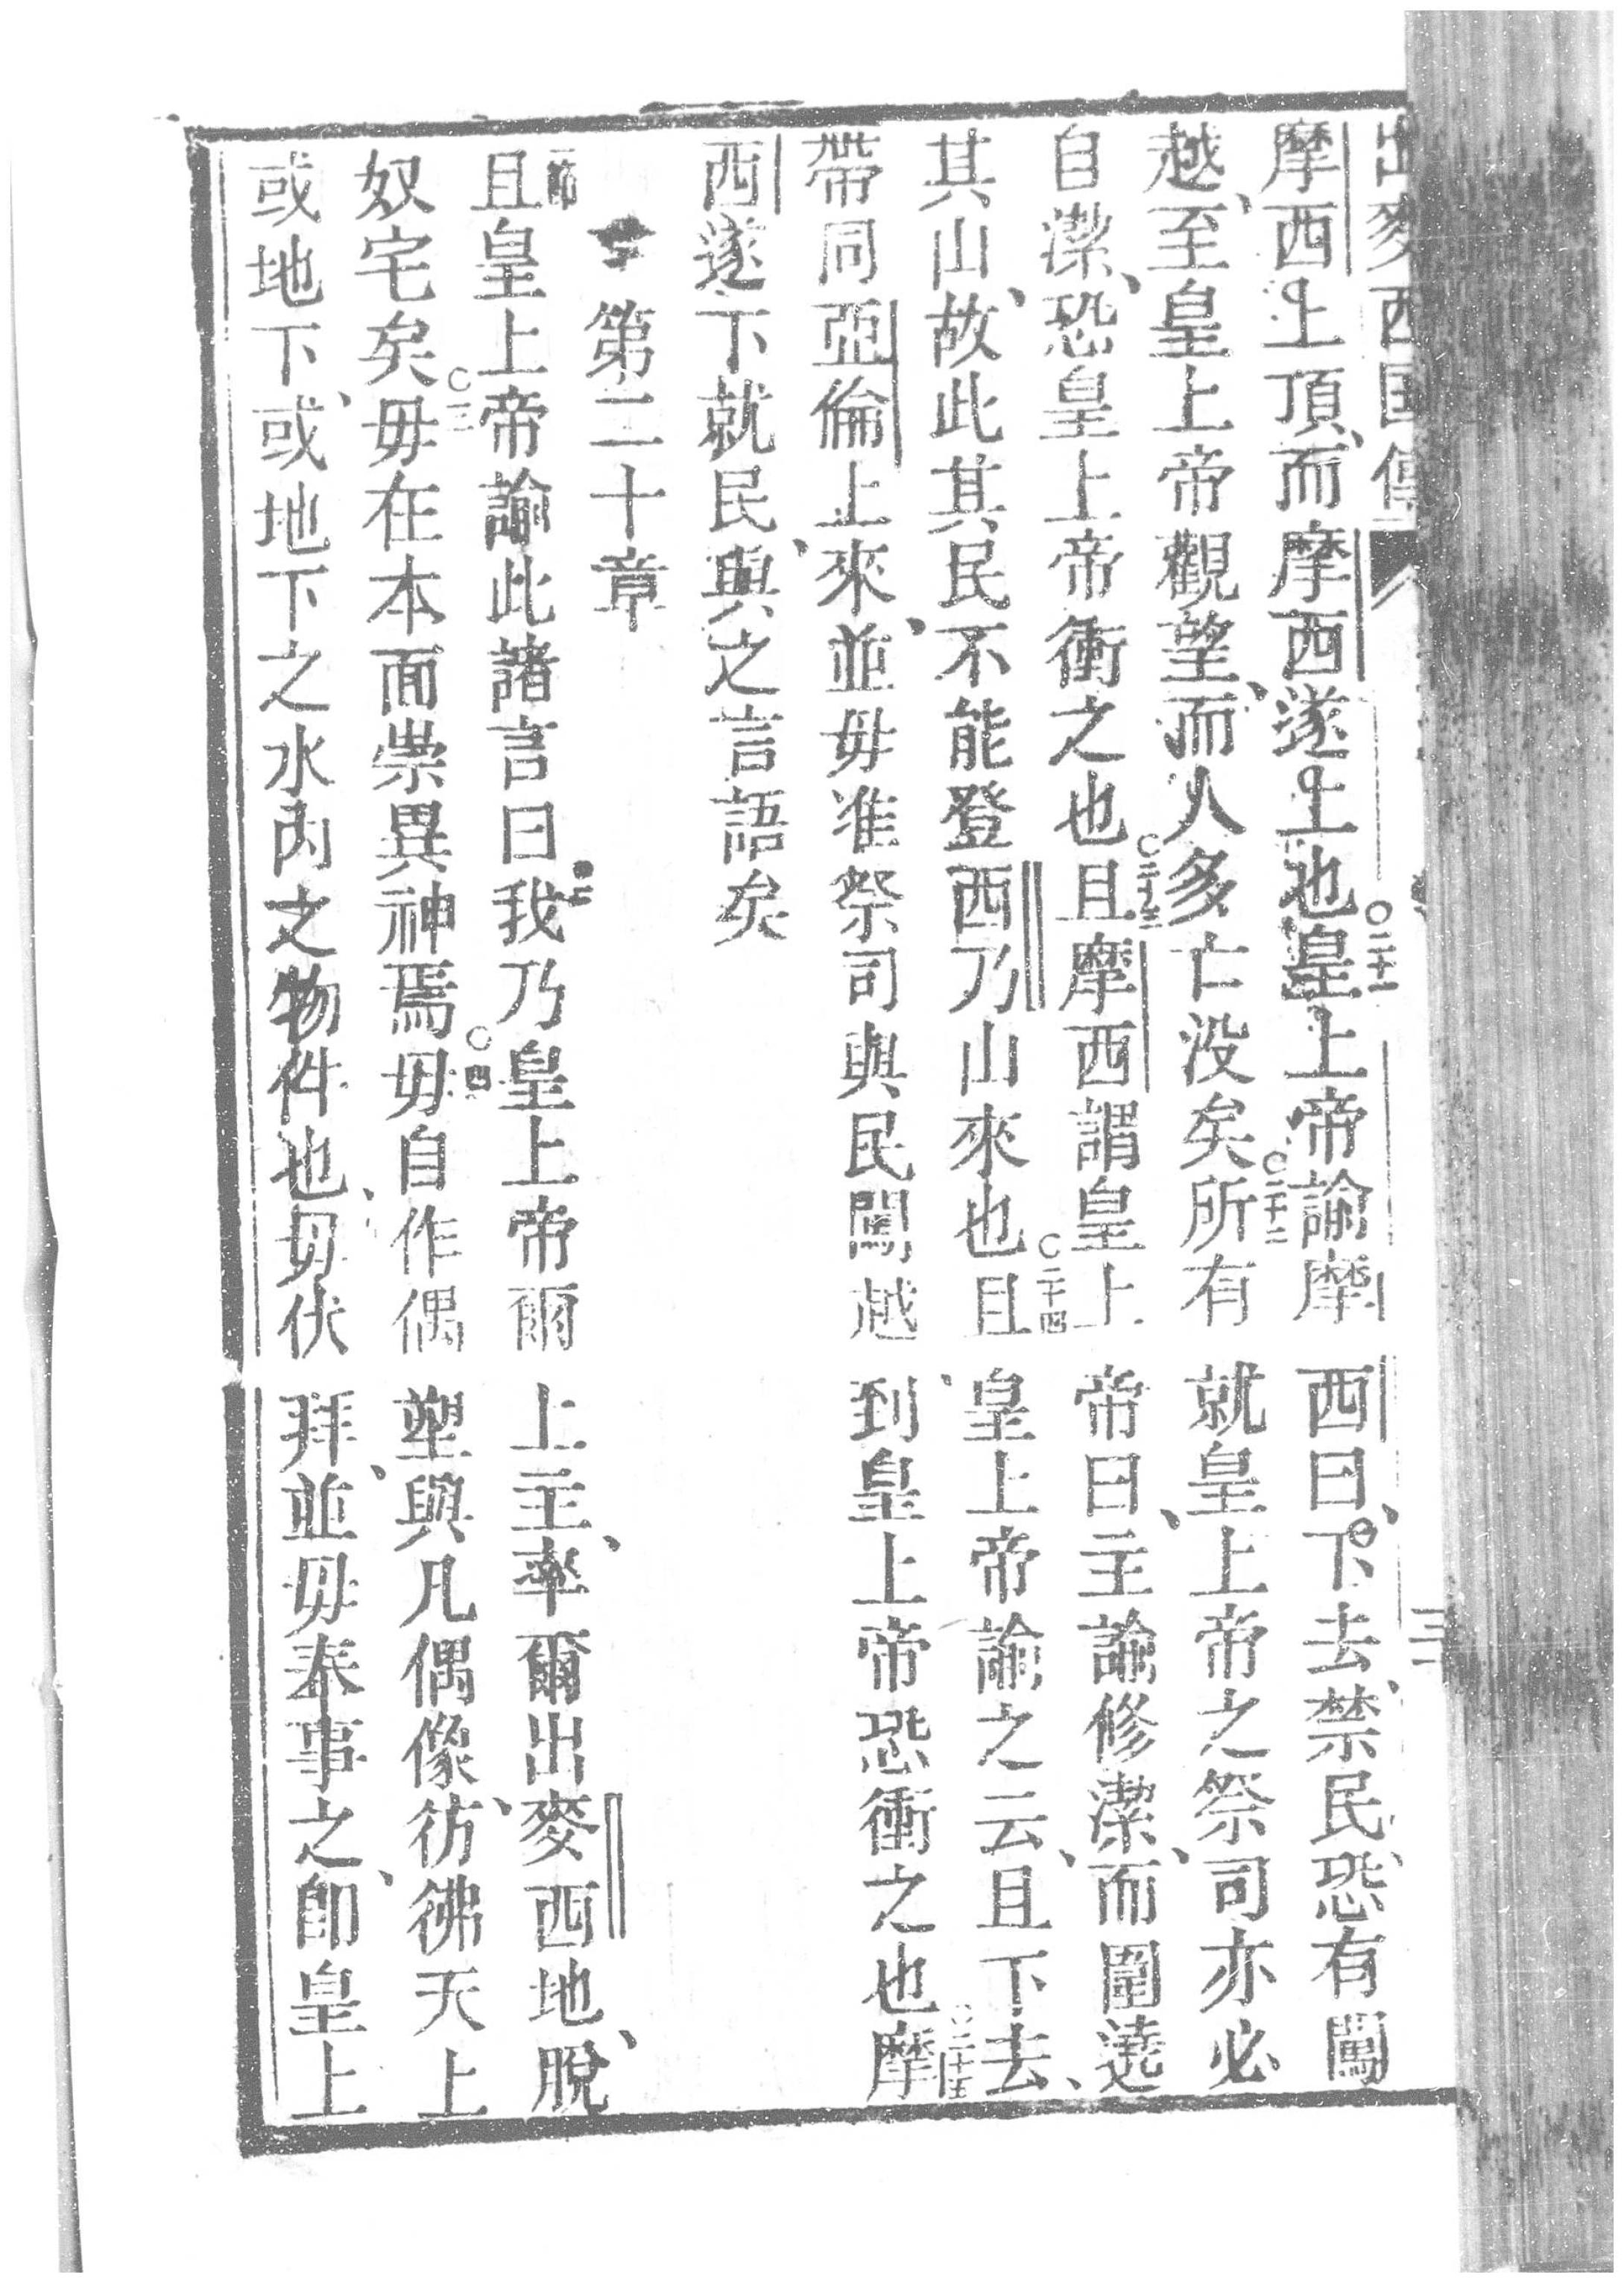 出麥西国傳　三十二
摩西上頂、而摩西遂上也○二十一皇上帝諭摩西曰、下去、禁民、恐有闖
越、至皇上帝觀望、而人多亡没矣○二十二所有就皇上帝之祭司亦必
自潔、恐皇上帝衝之也○二十三且摩西謂皇上帝曰、主諭修潔、而圍遶
其山、故此其民不能登西乃山來也○二十四且皇上帝諭之云、且下去、
帶同亞倫上來、並毋准祭司與民闖越、到皇上帝恐衝之也○二十五摩
西遂下就民、與之言語矣
第二十章
一節且皇上帝諭此諸言曰○二我乃皇上帝爾上主、率爾出麥西地、脫
奴宅矣○三毋在本面崇異神焉○四毋自作偶塑與凡偶像、彷彿天上
或地下、或地下之水內之物件也、毋伏拜、並毋奉事之、卽皇上